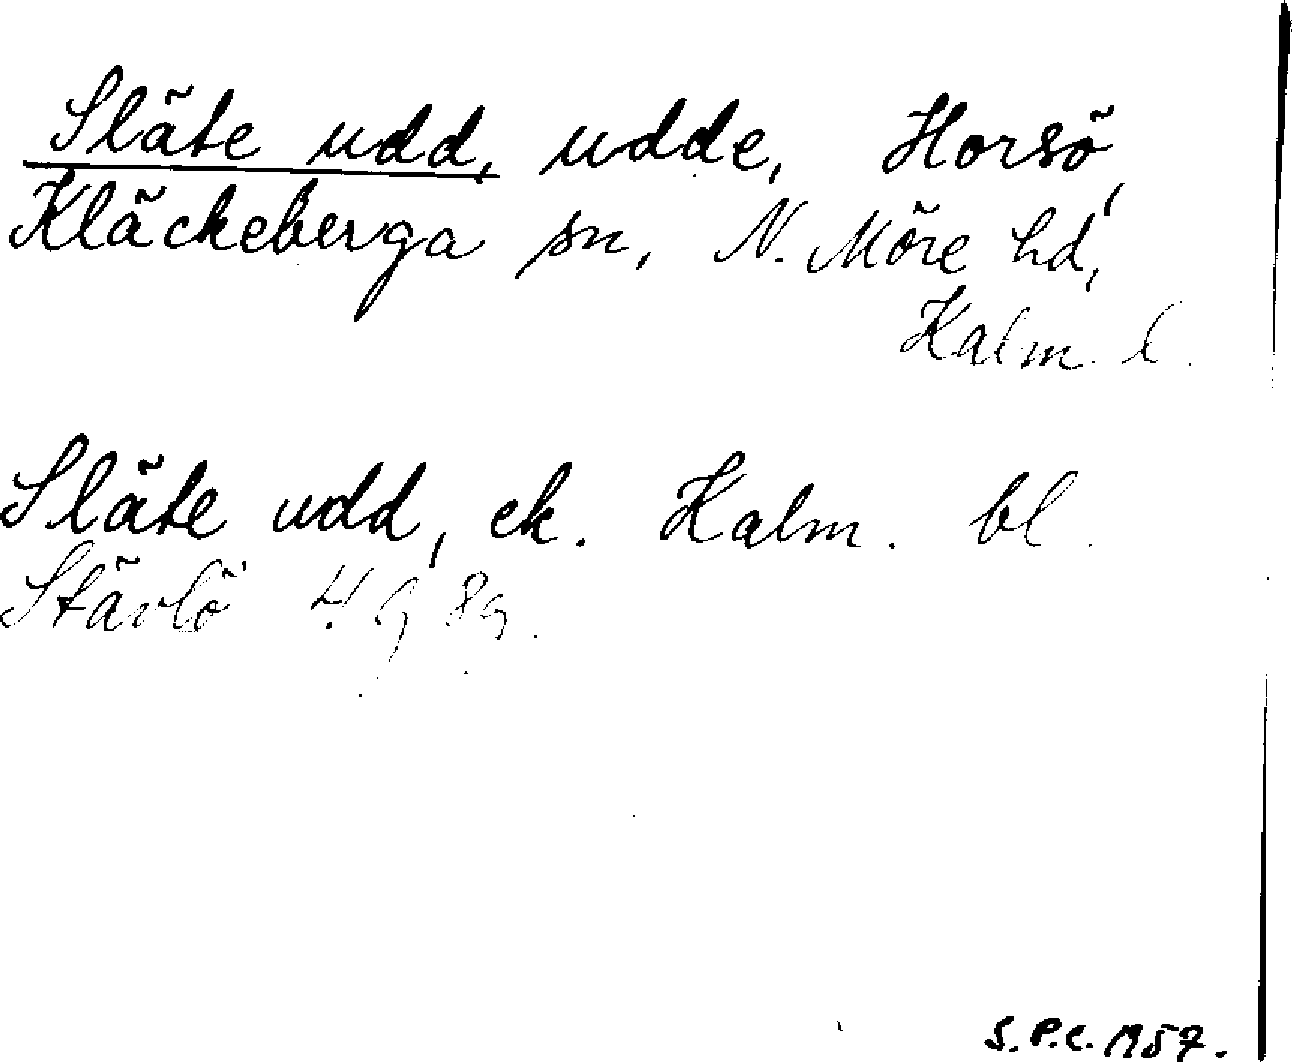 Släte udd, udde, Horsö,
Kläckeberga sn, N. Möre hd,
Kalm. l.
Släte udd, ek. Kalm. bl.
Stävlö 4 g 8g.
S.P.C. 1957.